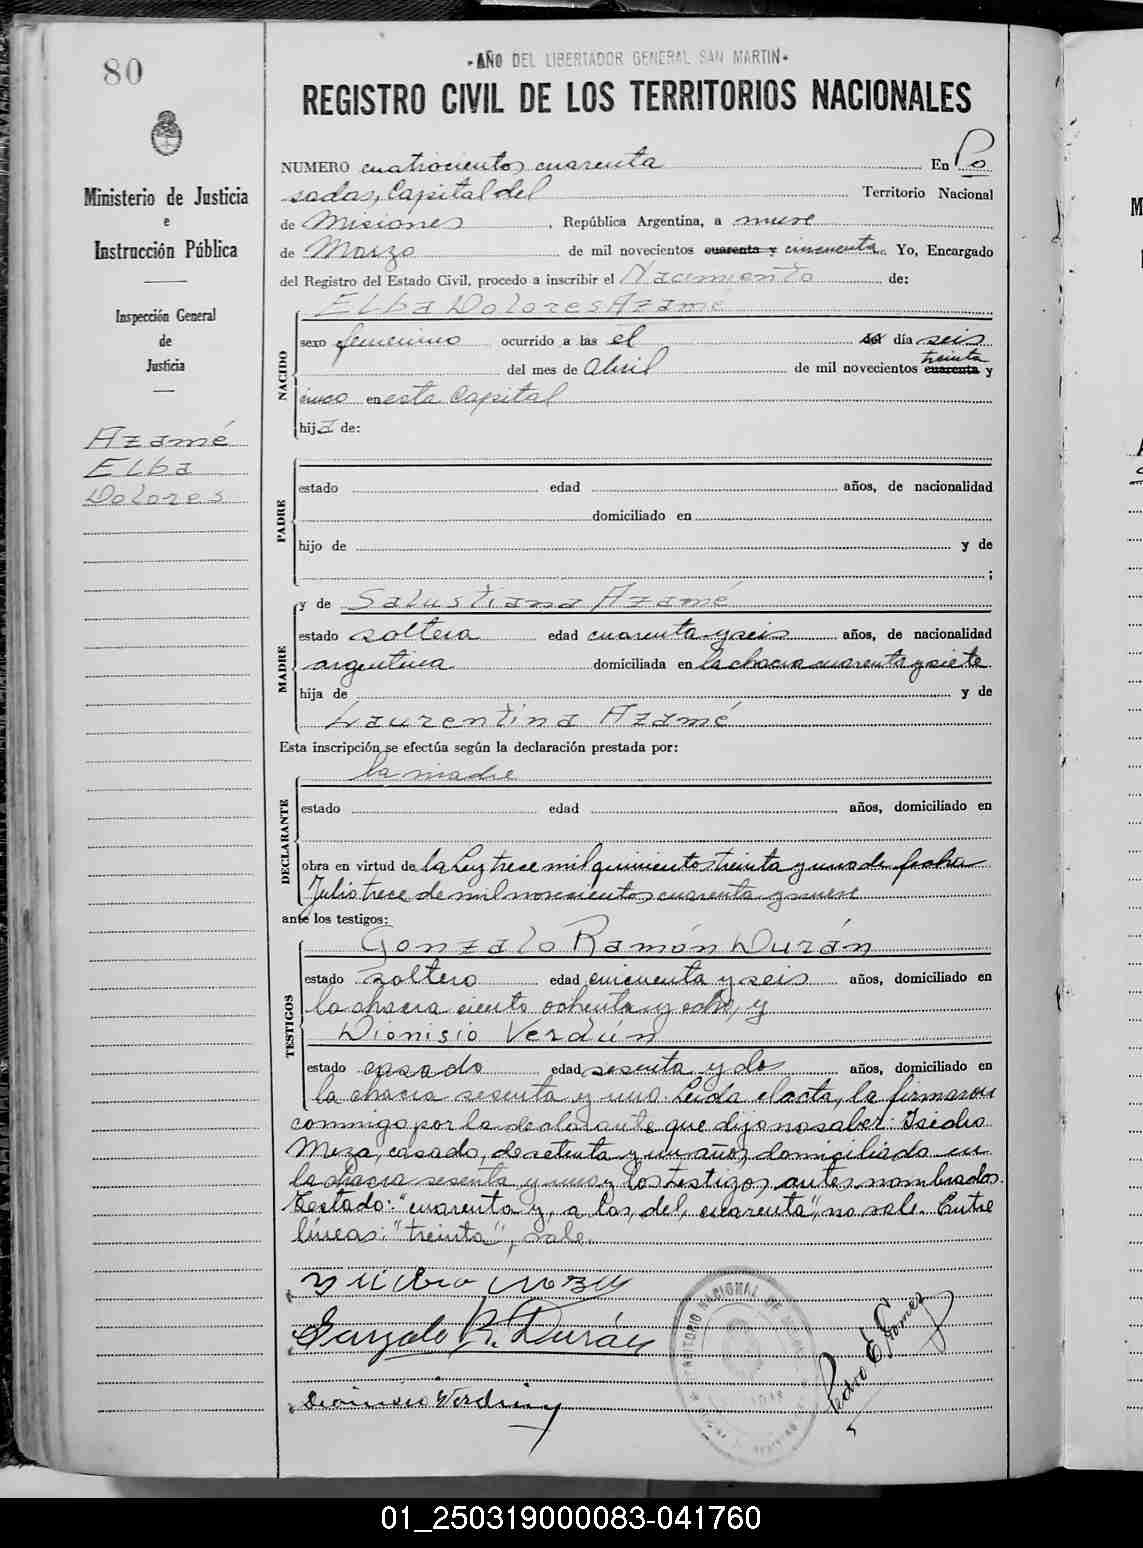 80
·AÑO DEL LIBERTADOR GENERAL SAN MARTIN·
REGISTRO CIVIL DE LOS TERRITORIOS NACIONALES
Ministerio de Justicia
e
Instrucción Pública
Inspección General
de
Justicia
Azamé
Elba
Dolores
NUMERO cuatrocientos cuarenta En Po
sadas, Capital del Territorio Nacional
de Misiones, República Argentina, a nueve
de Marzo de mil novecientos cuarenta y cincuenta. Yo, Encargado
del Registro del Estado Civil, procedo a inscribir el Nacimiento de:
Elba Dolores Azamé
NACIDO
sexo femenino ocurrido a las el del día seis
treinta
del mes de Abril de mil novecientos cuarenta y
cinco en esta Capital
hija de:
PADRE
estado edad años, de nacionalidad
domiciliado en
hijo de y de
;
y de Salustiana Azamé
MADRE
estado soltera edad cuarenta y seis años, de nacionalidad
argentina domiciliada en la chacra cuarenta y siete
hija de y de
Laurentina Azamé
Esta inscripción se efectúa según la declaración prestada por:
la madre
DECLARANTE
estado edad años, domiciliado en
obra en virtud de la Ley trece mil quinientos treinta y uno de fecha
Julio trece de mil novecientos cuarenta y nueve
ante los testigos:
Gonzalo Ramón Durán
TESTIGOS
estado soltero edad cincuenta y seis años, domiciliado en
la chacra ciento ochenta y ocho, y
Dionisio Verdún
estado casado edad sesenta y dos años, domiciliado en
la chacra sesenta y uno. Leida el acta, la firmaron
conmigo por la declarante que dijo no saber: Isidro
Meza, casado, de setenta y un años, domiciliado en
la chacra sesenta y uno y los testigos antes nombrados.
Testado: "cuarenta y, a las, del, cuarenta", no vale. Entre
líneas: "treinta", vale.
Gonzalo R. Durán
Dionisio Verdun
Pedro E. Gomez
TERRITORIO NACIONAL DE
01_250319000083-041760